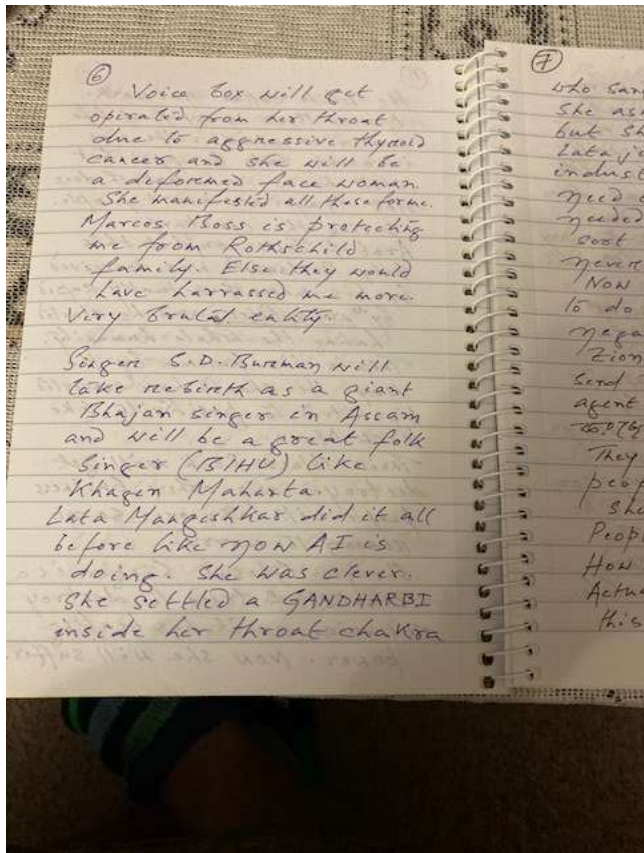 6
Voice box will get
operated from her throat
due to aggressive thyroid
cancer and she will be
a deformed face woman.
She manifested all these for me.
Marcos Boss is protecting
me from Rothschild
family. Else they would
have harrassed me more.
Very brutal entity.
Singer S.D. Burman will
take rebirth as a giant
Bhajan singer in Assam
and will be a great folk
Singer (BIHU) like
Khagen Mahanta.
Lata Mangeshkar did it all
before like now AI is
doing. She was clever.
She settled a GANDHARBI
inside her throat chakra
7
who san
She as
but s
Lata ji
indust
need
needed
sort
never
Now
to do
nega
Zion
Send
agent
They
peop
She
Peop
How
Actua
this